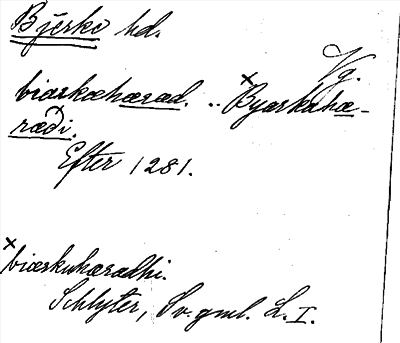 Bjärke hd.
Vg.
biærkæhæræd. .. ˣByærkahæ-
ræði.
Efter 1281.
ˣbiærkuhæradhi.
Schlyter, Sv. gml. L. I.